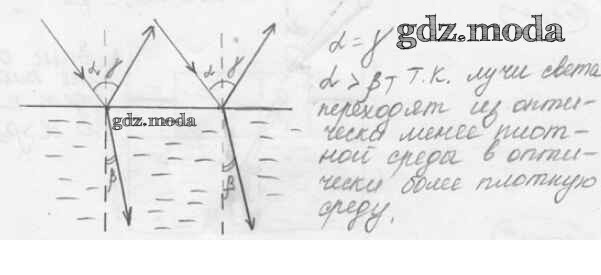 gdz.moda
α = γ
α > β, т.к. лучи света
переходят из опти-
чески менее плот-
ной среды в опти-
чески более плотную
среду.
α γ α γ
gdz.moda
β β